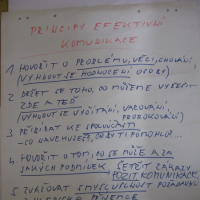 PRINCIPY EFEKTIVNÍ
KOMUNIKACE
1 HOVOŘIT O PROBLÉMU, VĚCI, CHOVÁNÍ
(VYHNOUT SE HODNOCENÍ OSOBY)
2 DRŽET SE TOHO, CO MŮŽEME VYŘEŠIT
ZDE A TEĎ
(VYHNOUT SE VYČÍTÁNÍ, VAROVÁNÍ,
PROROKOVÁNÍ)
3 PŘIBÍRAT KE SPOLUÚČASTI
- CO NAVRHUJEŠ, CO BY TI POMOHLO...
4 HOVOŘIT O TOM, CO SE MŮŽE A ZA
JAKÝCH PODMÍNEK, ŠETŘIT ZÁKAZY
POZIT. KOMUNIKACE,
5 ZVAŽOVAT SMYSLUPLNOST POŽADAVKU